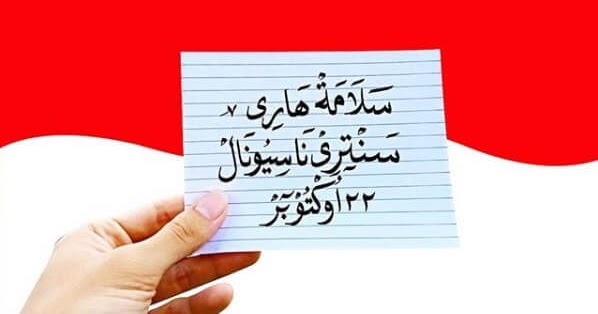 سَلَامَةْ هَارِى
سَنْتِرِىْ نَاسِيُونَالْ
٢٢ أُوكْتُوْبَرْ